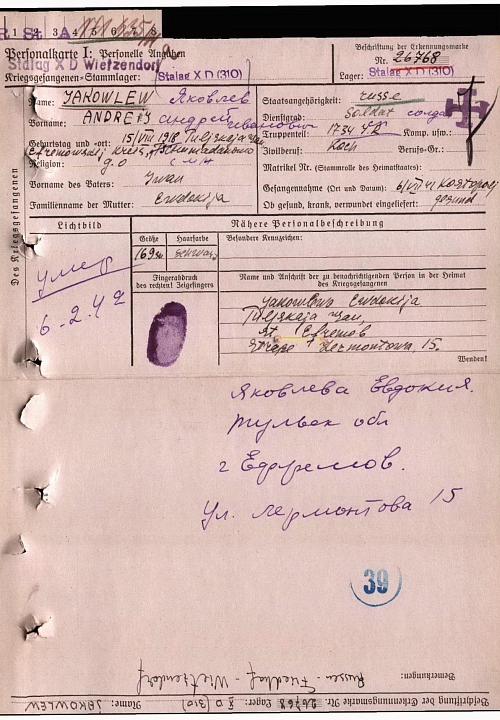 1 2 3 4 5 6 7 8
Personalkarte I: Personelle Angaben
Stalag X D Wietzendorf
Kriegsgefangenen-Stammlager: Stalag X D (310)
Beschriftung der Erkennungsmarke
Nr. 26768
Lager: Stalag X D (310)
Des Kriegsgefangenen
Name: JAKOWLEW Яковлев
Vorname: ANDREIJ андрей иванович
Geburtstag und -ort: 15/VIII 1918 Tuljskaja
Efremowskij Kreis,
Religion: g.o
Vorname des Vaters: Iwan
Familienname der Mutter: Ewdokija
Staatsangehörigkeit: russe
Dienstgrad: Soldat солда
Truppenteil: 1734 Komp. usw.:
Zivilberuf: Koch Berufs-Gr.:
Matrikel Nr. (Stammrolle des Heimatstaates)
Gefangennahme (Ort und Datum): 6/VII 41 Kostopolj
Ob gesund, krank, verwundet eingeliefert: gesund
Lichtbild
умер
6-2-42
Nähere Personalbeschreibung
Größe Haarfarbe Besondere Kennzeichen:
169 schwarz
Fingerabdruck
des rechten! Zeigefingers
Name und Anschrift der zu benachrichtigenden Person in der Heimat
des Kriegsgefangenen
Jakowlewa Ewdokija
Tuljskaja
St. Efremob
Lermontowa 15.
Wenden!
Яковлева Евдокия.
тульск обл
г Ефремов.
ул. лермонтова 15
39
Bemerkungen:
Russen-Friedhof-Wietzendorf
Beschriftung der Erkennungsmarke Nr. 26768 Lager: X D (310) Name: JAKOWLEW